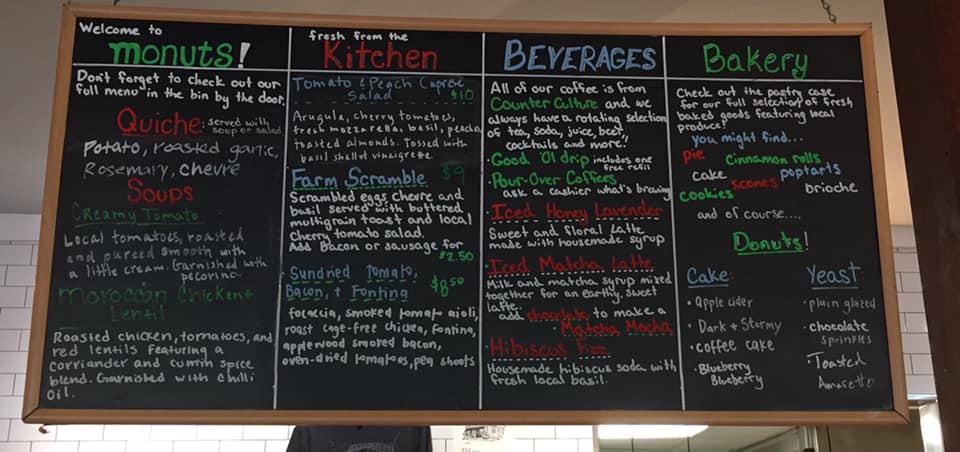 Welcome to
monuts!
Don't forget to check out our
full menu in the bin by the door.
Quiche: served with
soup or salad
Potato, roasted garlic,
Rosemary, chevre
Soups
Creamy Tomato
Local tomatoes, roasted
and pureed smooth with
a little cream. Garnished with
pecorino.
Moroccan Chicken +
Lentil
Roasted chicken, tomatoes, and
red lentils featuring a
corriander and cumin spice
blend. Garnished with chilli
oil.
fresh from the
Kitchen
Tomato & Peach Caprese
Salad $10
Arugula, cherry tomatoes,
fresh mozzarella, basil, peache
toasted almonds. Tossed with
basil shallot vinaigrette.
Farm Scramble $9
Scrambled eggs chevre and
basil served with buttered
multigrain toast and local
cherry tomato salad.
Add Bacon or sausage for
$2.50
Sundried Tomato,
Bacon, + Fontina $8.50
focaccia, smoked tomato aioli,
roast cage-free chicken, fontina,
applewood smoked bacon,
oven-dried tomatoes, pea shoots
BEVERAGES
All of our coffee is from
Counter Culture and we
always have a rotating selection
of tea, soda, juice, beer,
cocktails and more!
·Good 'Ol drip includes one
free refill
·Pour-Over Coffees
ask a cashier what's brewing
·Iced Honey Lavender
Sweet and floral latte
made with housemade syrup
·Iced Matcha Latte
Milk and matcha syrup mixed
together for an earthy, sweet
latte.
add chocolate to make a
·Matcha Mocha
·Hibiscus Fizz
Housemade hibiscus soda with
fresh local basil.
Bakery
Check out the pastry case
for our full selection of fresh
baked goods featuring local
produce!
you might find...
pie cinnamon rolls
cake poptarts
cookies scones brioche
and of course....
Donuts!
Cake:
· apple cider
· Dark + Stormy
· coffee cake
· Blueberry
Blueberry
Yeast:
· plain glazed
· chocolate
sprinkles
· Toasted
Amaretto